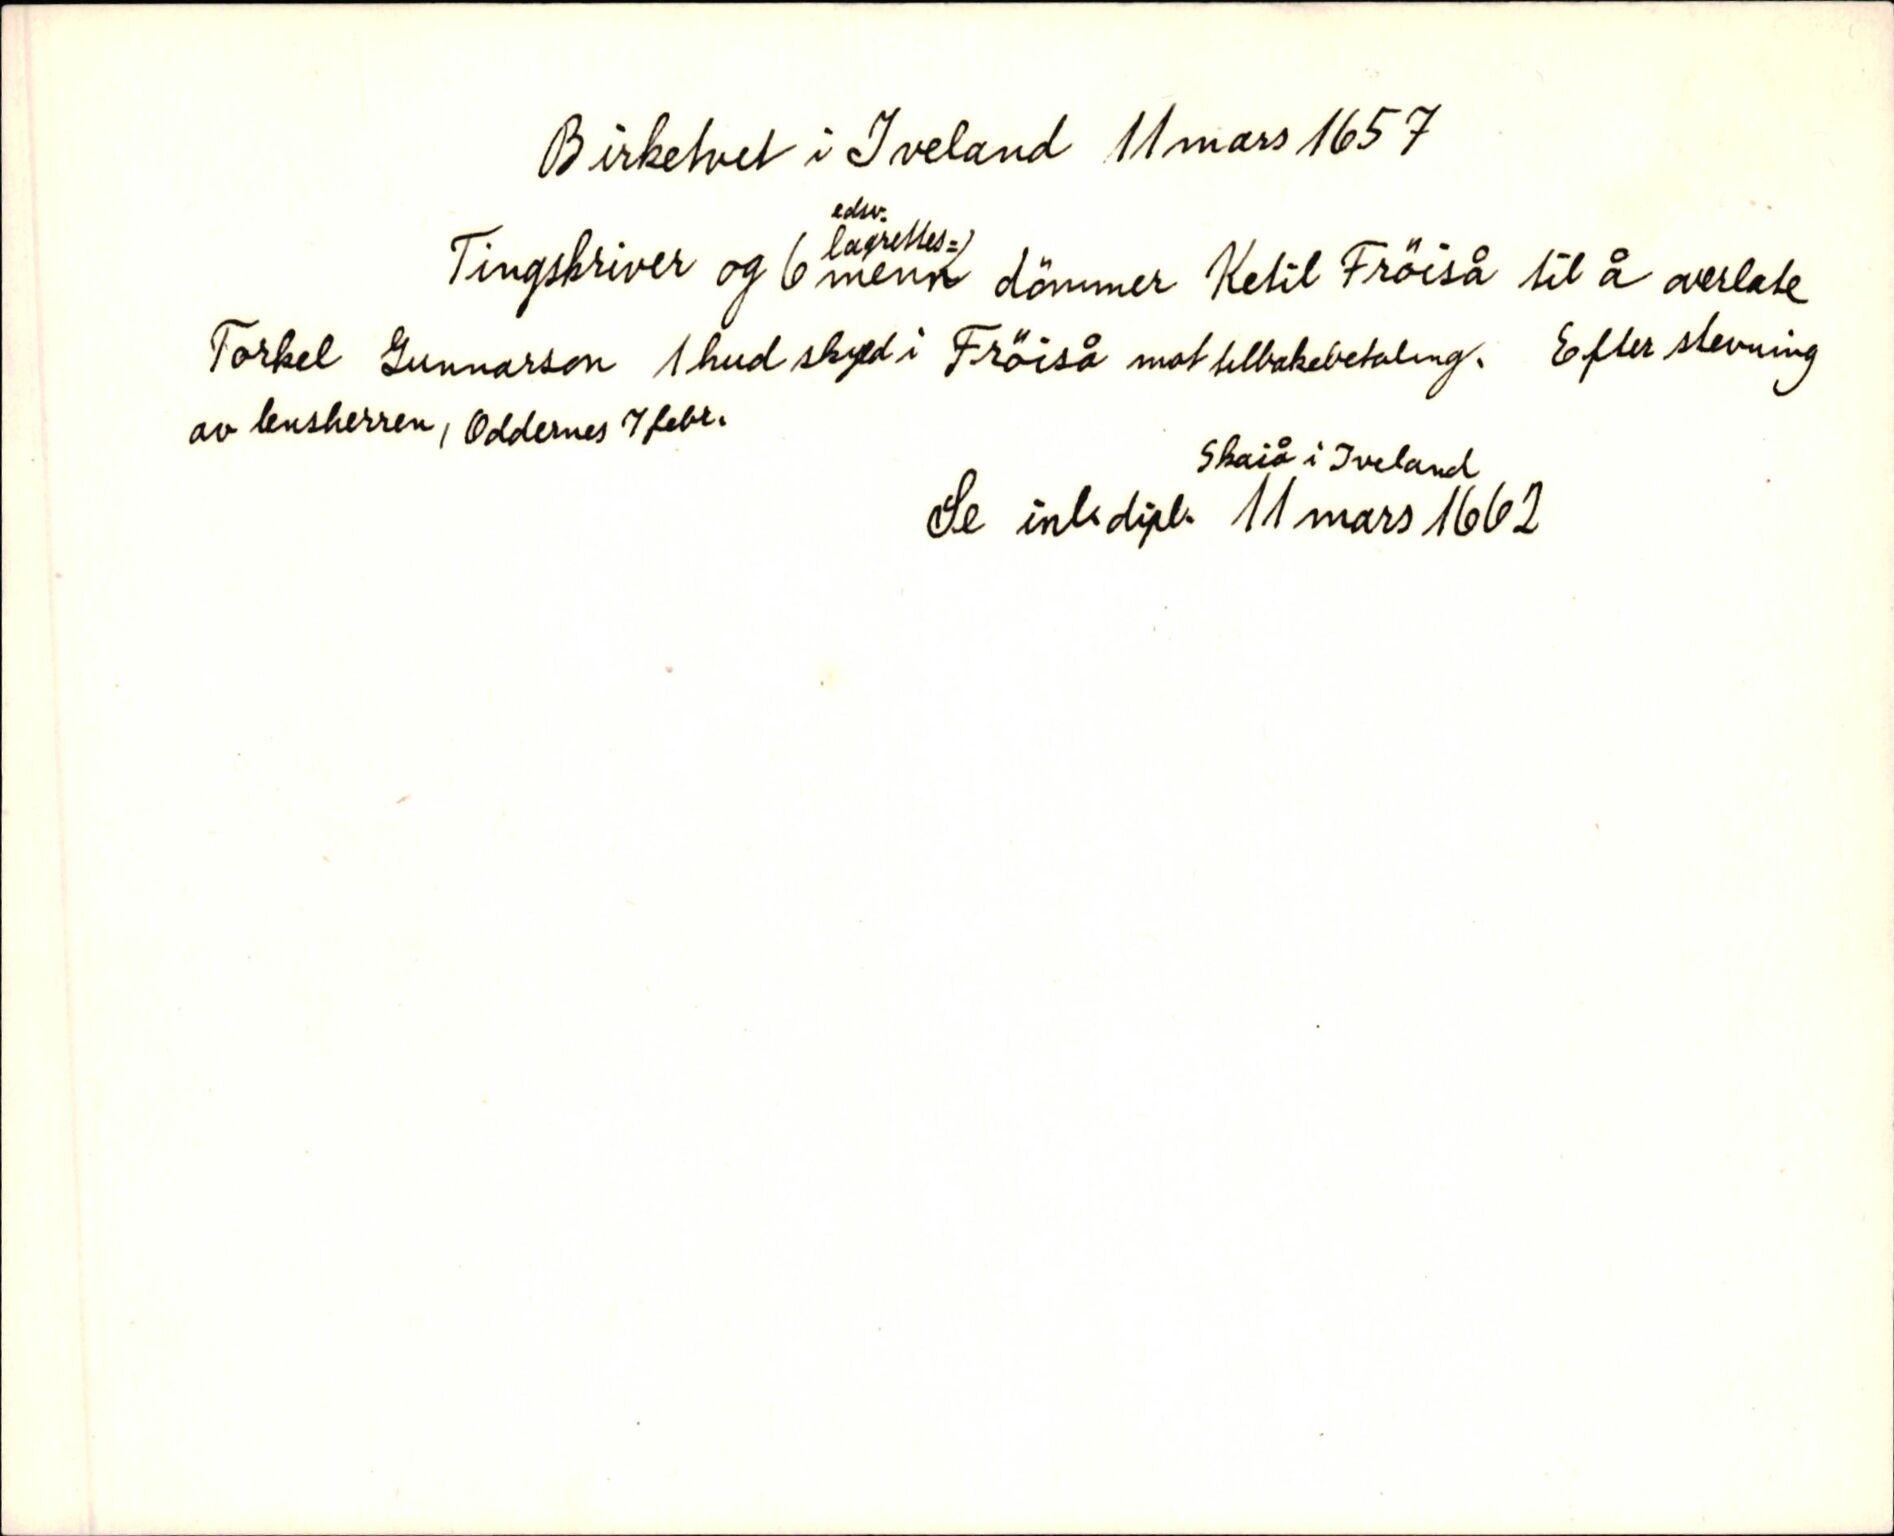 Birketvet i Iveland 11 mars 1657
edsv.
lagrettes=
Tingskriver og 6 menn dömmer Ketil Fröiså til å overlate
Torkel Gunnarson 1 hud skyld i Fröiså mot tilbakebetaling. Efter stevning
av lensherren, Oddernes 7 febr.
Skaiå i Iveland
Se inl. dipl. 11 mars 1662